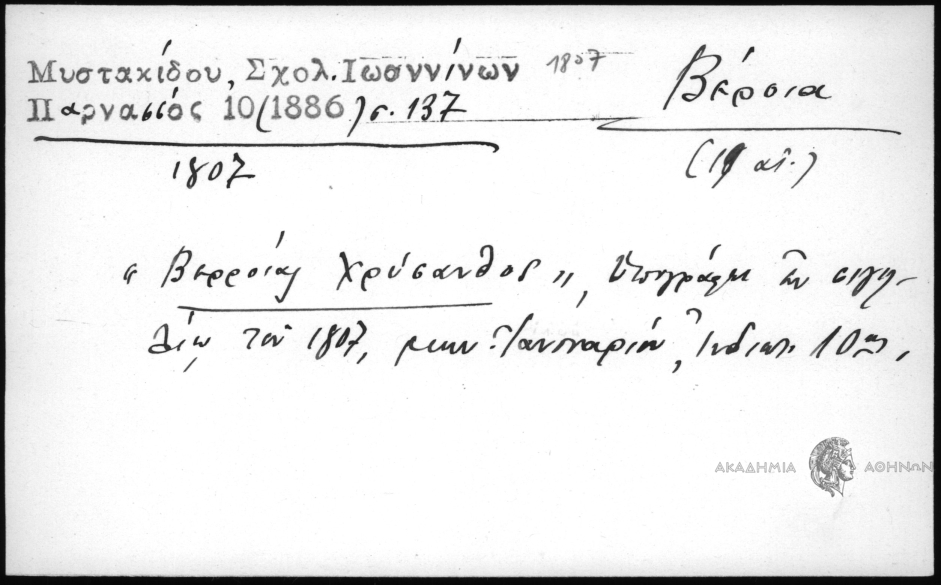 Μυστακίδου, Σχολ. Ιωαννίνων 1807
Παρνασσός 10 (1886) σ. 137
Βέροια
1807
(19 αἰ.)
« Βερροίας Χρύσανθος », ὑπογράφει ἐν σιγιλ-
λίῳ τοῦ 1807, μηνὶ Ἰανουαρίου, Ἰνδικτ. 10ης,
ΑΚΑΔΗΜΙΑ ΑΘΗΝΩΝ